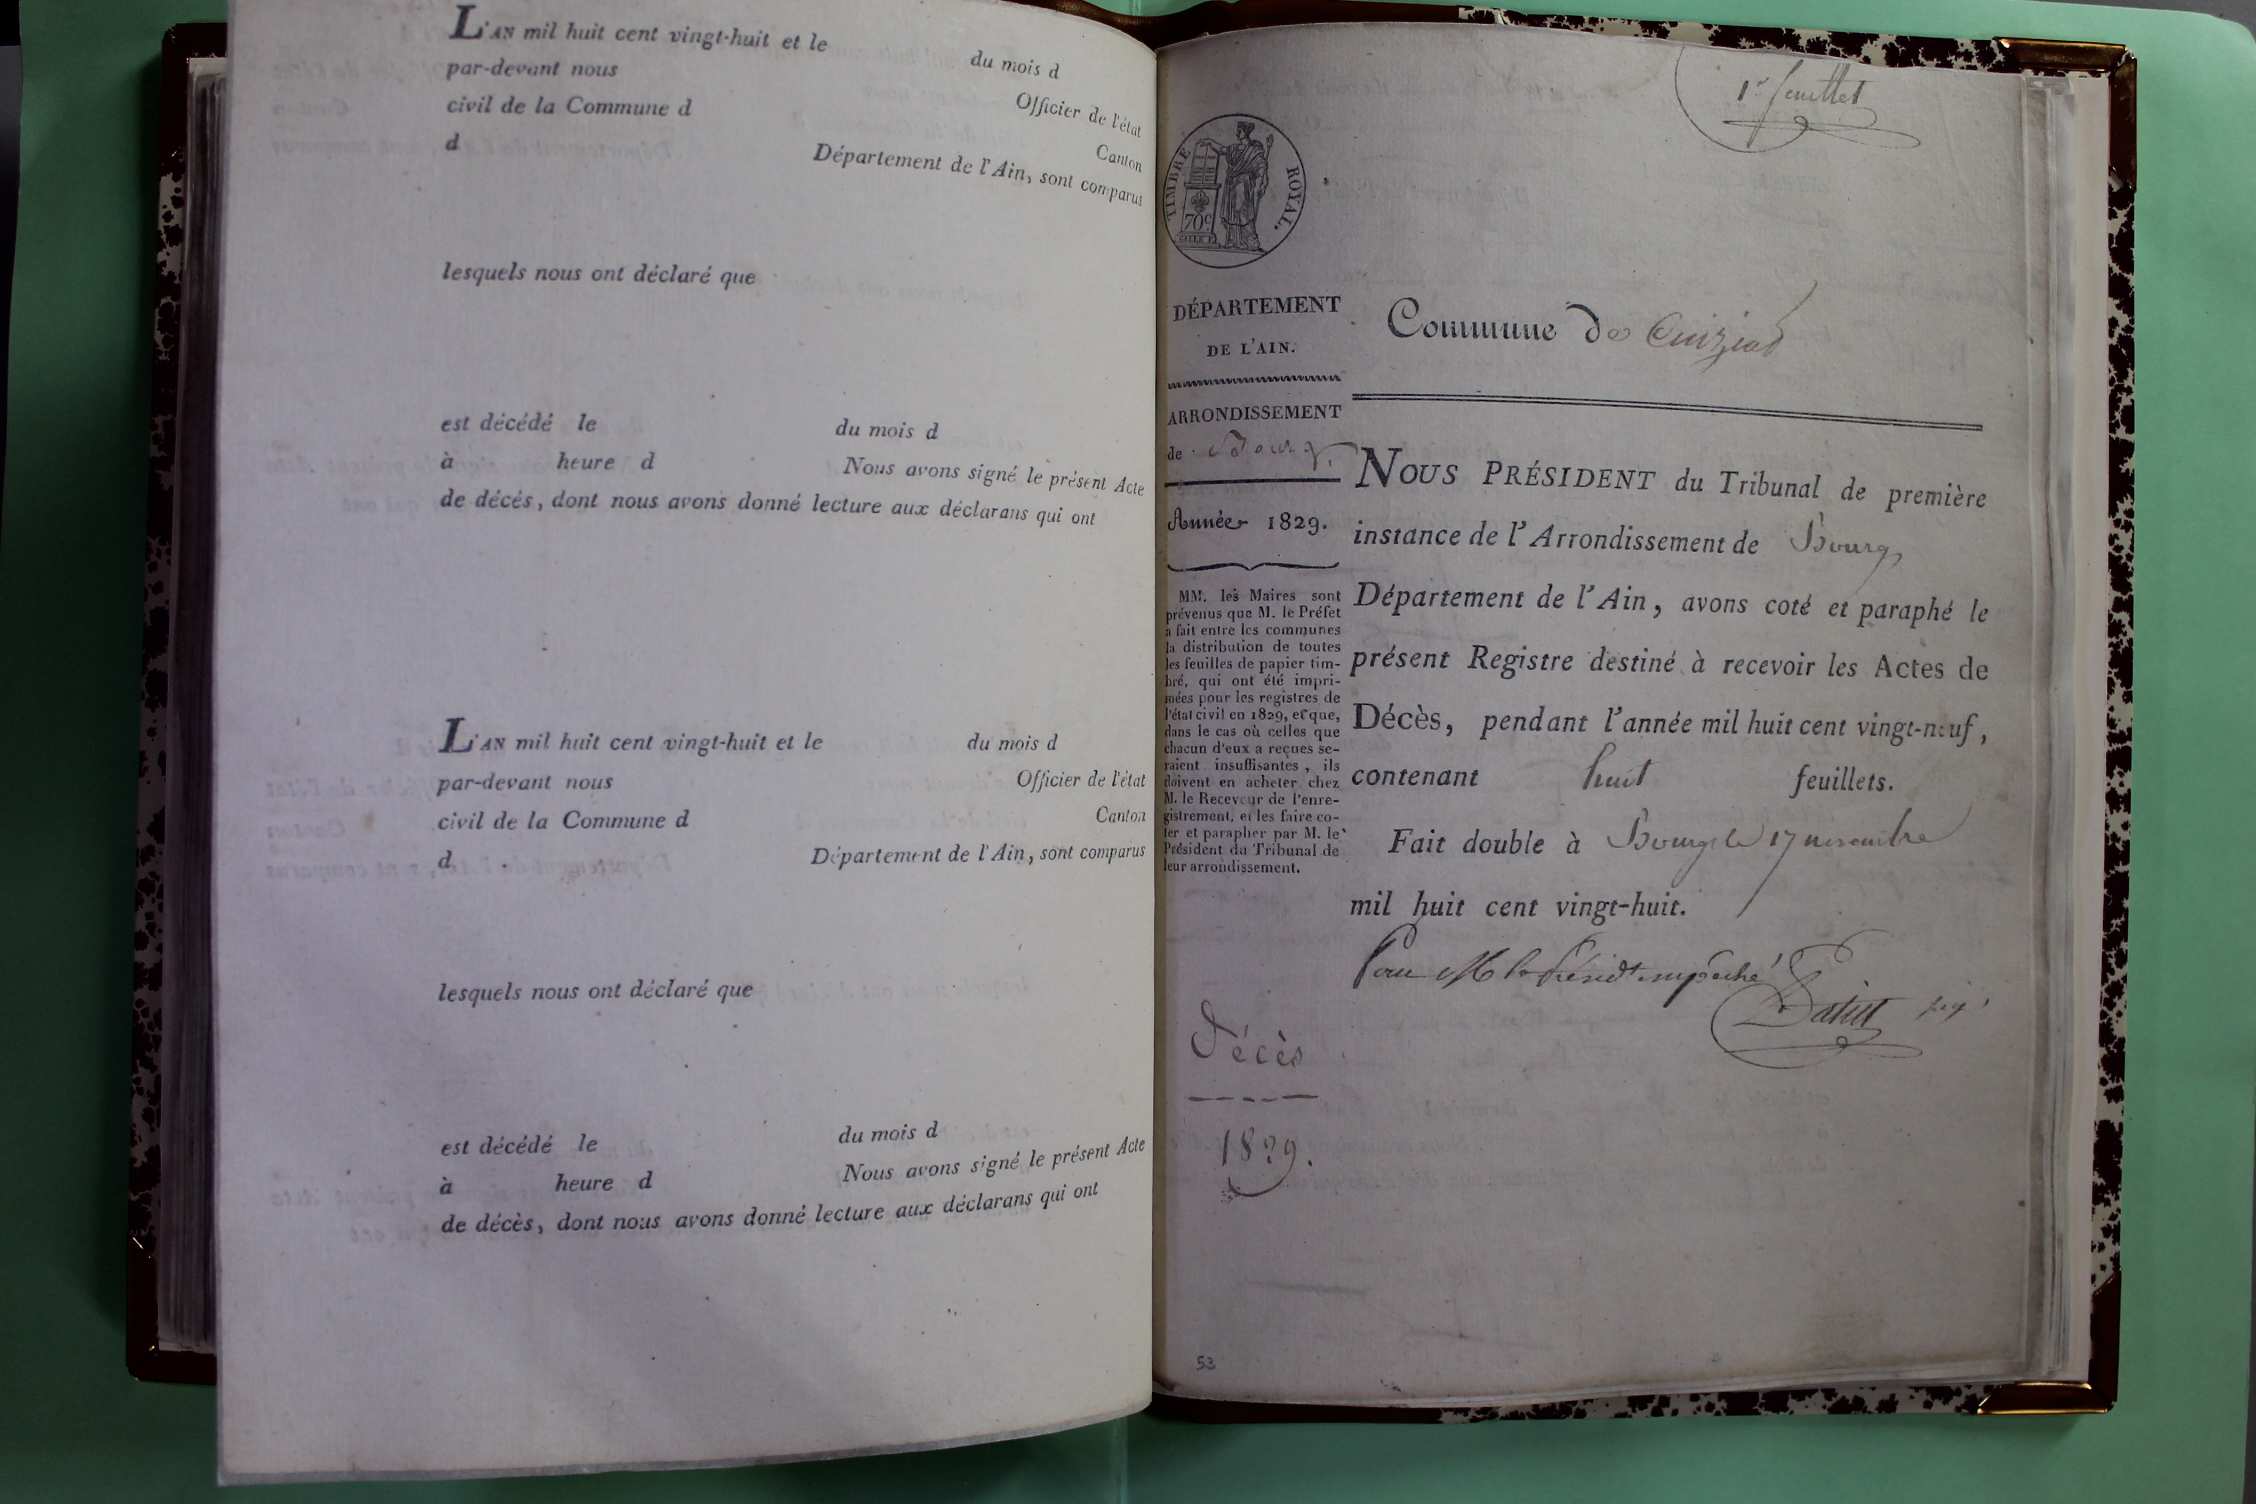 L'AN mil huit cent vingt-huit et le du mois d
par-devant nous Officier de l'état
civil de la Commune d Canton
d Département de l'Ain, sont comparus
lesquels nous ont déclaré que
est décédé le du mois d
à heure d Nous avons signé le présent Acte
de décès, dont nous avons donné lecture aux déclarans qui ont
L'AN mil huit cent vingt-huit et le du mois d
par-devant nous Officier de l'état
civil de la Commune d Canton
d Département de l'Ain, sont comparus
lesquels nous ont déclaré que
est décédé le du mois d
à heure d Nous avons signé le présent Acte
de décès, dont nous avons donné lecture aux déclarans qui ont
1er feuillet
TIMBRE ROYAL.
70c
DÉPARTEMENT
DE L'AIN.
ARRONDISSEMENT
de Bourg
Année 1829.
MM. les Maires sont
prévenus que M. le Préfet
a fait entre les communes
la distribution de toutes
les feuilles de papier tim-
bré, qui ont été impri-
mées pour les registres de
l'état civil en 1829, et que,
dans le cas où celles que
chacun d'eux a reçues se-
raient insuffisantes, ils
doivent en acheter chez
M. le Receveur de l'enre-
gistrement, et les faire co-
ter et parapher par M. le
Président du Tribunal de
leur arrondissement.
Décès
1829.
53
Commune de Cuiziat
NOUS PRÉSIDENT du Tribunal de première
instance de l'Arrondissement de Bourg
Département de l'Ain, avons coté et paraphé le
présent Registre destiné à recevoir les Actes de
Décès, pendant l'année mil huit cent vingt-neuf,
contenant huit feuillets.
Fait double à Bourg le 17 novembre
mil huit cent vingt-huit.
Pour M le Présidt empêché